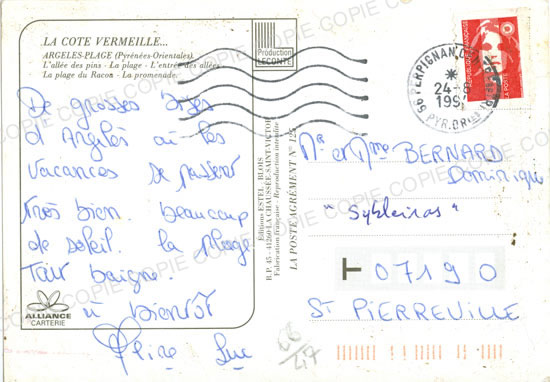 LA COTE VERMEILLE...
ARGELES-PLAGE (Pyrénées-Orientales)
L'allée des pins - La plage - L'entrée des allées
La plage du Racou - La promenade.
Production
LECONTE
De grosses bises
d'Argelès où les
vacances se passent
très bien. beaucoup
de soleil. la plage
Tout baigne.
à bientôt
Luc
ALLIANCE
CARTERIE
Editions ESTEL - BLOIS
B.P. 45 - 41260 LA CHAUSSÉE-SAINT-VICTOR
Fabrication française - Reproduction interdite
LA POSTE AGRÉMENT N°
RÉPUBLIQUE FRANÇAISE
LA POSTE
66 PERPIGNAN
24-
199
PYR.OR
Mr et Mme BERNARD
Dominique
" Sybleiras "
07190
ST PIERREVILLE
COPIE COPIE COPIE COPIE